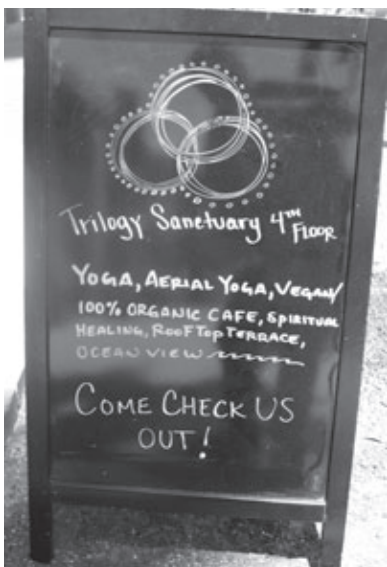 Trilogy Sanctuary 4TH FLOOR
YOGA, AERIAL YOGA, VEGAN/
100% ORGANIC CAFE, SPIRITUAL
HEALING, ROOFTOP TERRACE,
OCEAN VIEW
COME CHECK US
OUT!